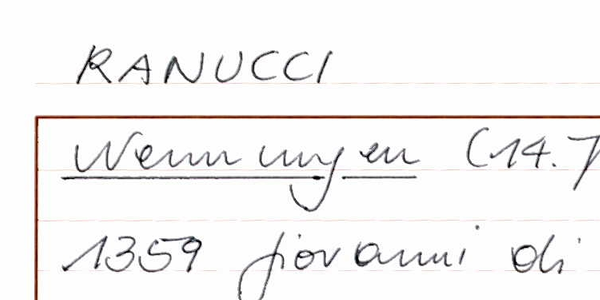 RANUCCI
Nennungen (14.
1359 Giovanni di